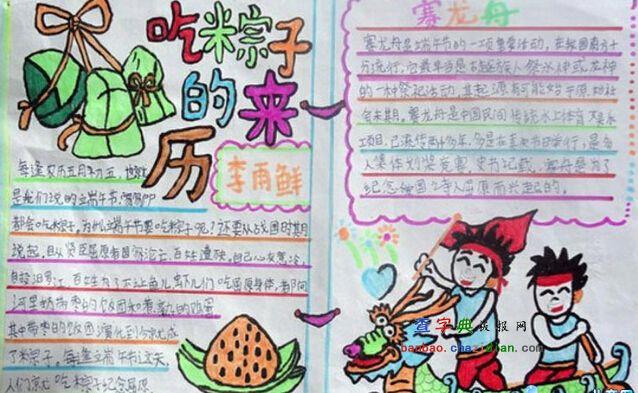 吃米粽子
的来
历
李雨鲜
每逢农历五月初五
是我们说的端午节
都会吃米粽子。为什么端午节要吃米粽子呢？还要从战国时期
说起
自投汨罗江，百姓为了不让鱼儿虾儿们吃屈原身体，
河里
其中带枣的饭团演化到今就成
了米粽子，每逢端午节这天，
人们就吃米粽子纪念屈原
赛龙舟
赛龙舟是端午节的一项重要活动，在我国南方十
分流行，它最早当是古越族人祭水神或龙神
的一种祭祀活动，其起源有可能始于原始社
会末期。赛龙舟是中国民间传统水上体育娱乐
项目，已流传两千多年，多是在喜庆节日举行，是多
人集体划桨竞赛。史书记载，赛舟是为了
纪念爱国诗人屈原而兴起的。
查字典板报网
banbao.chazidian.com